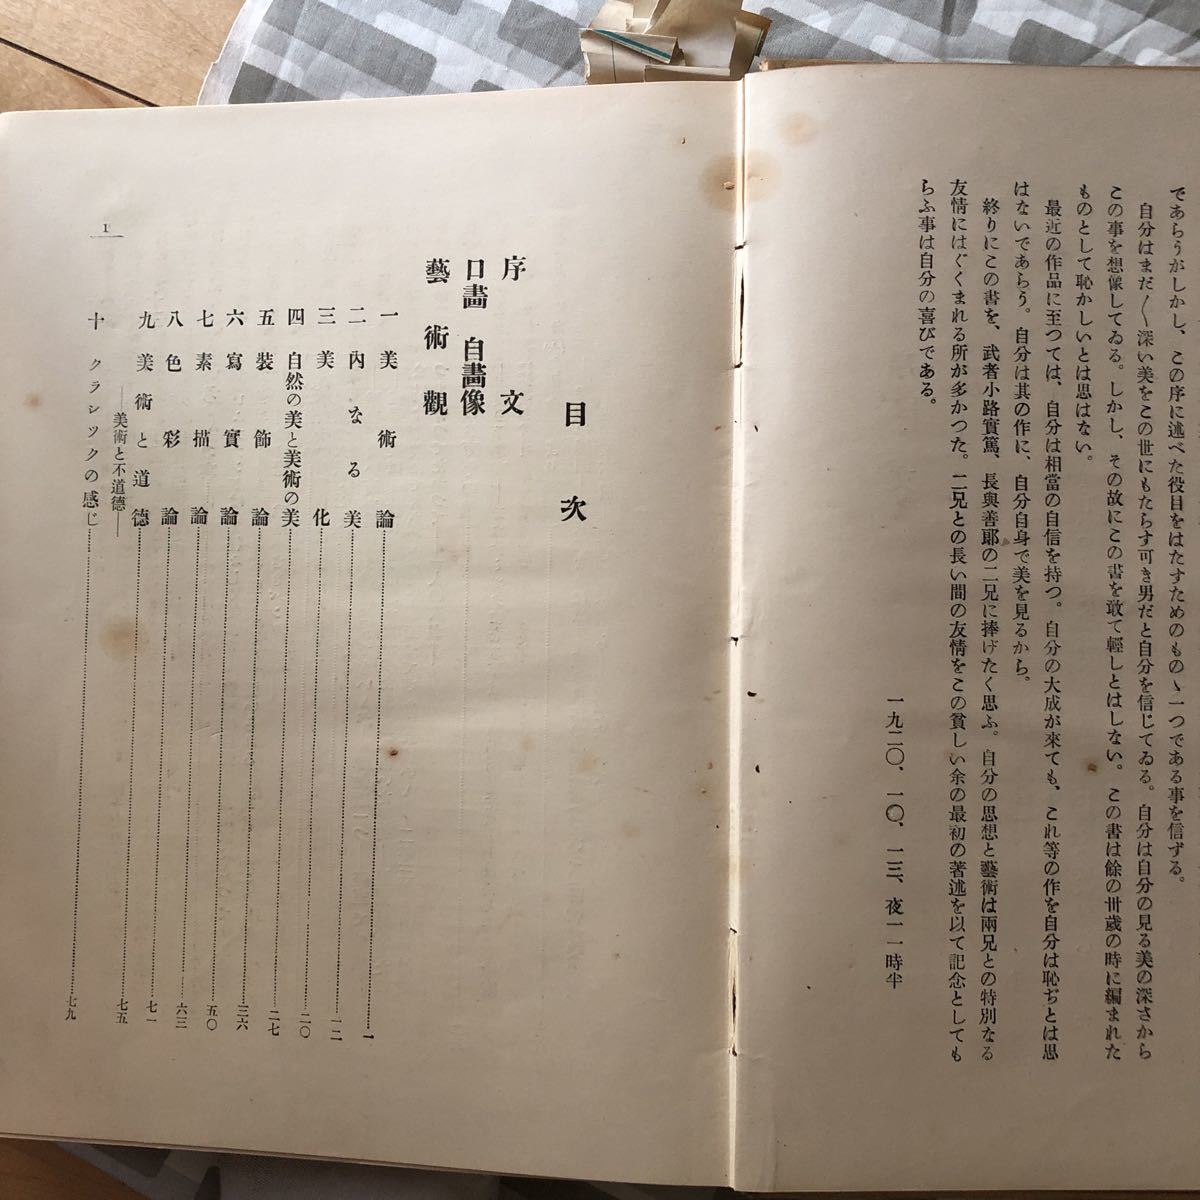 であらうがしかし、この序に述べた役目をはたすためのものゝ一つである事を信ずる。
自分はまだ〱深い美をこの世にもたらす可き男だと自分を信じてゐる。自分は自分の見る美の深さから
この事を想像してゐる。しかし、その故にこの書を敢て輕しとはしない。この書は餘の卅歳の時に編まれた
ものとして恥かしいとは思はない。
最近の作品に至つては、自分は相當の自信を持つ。自分の大成が來ても、これ等の作を自分は恥ぢとは思
はないであらう。自分は其の作に、自分自身で美を見るから。
終りにこの書を、武者小路實篤、長與善郎の二兄に捧げたく思ふ。自分の思想と藝術は兩兄との特別なる
友情にはぐくまれる所が多かつた。二兄との長い間の友情をこの貧しい余の最初の著述を以て記念としても
らふ事は自分の喜びである。
一九二〇、一〇、一三、夜一一時半
目次
序文
口畫 自畫像
藝術觀
一 美術論……一
二 內なる美……一二
三 美化……二〇
四 自然の美と美術の美……二七
五 裝飾論……三六
六 寫實論……五〇
七 素描論……六三
八 色彩論……七一
九 美術と道德……七五
―美術と不道德―
十 クラシツクの感じ……七九
1